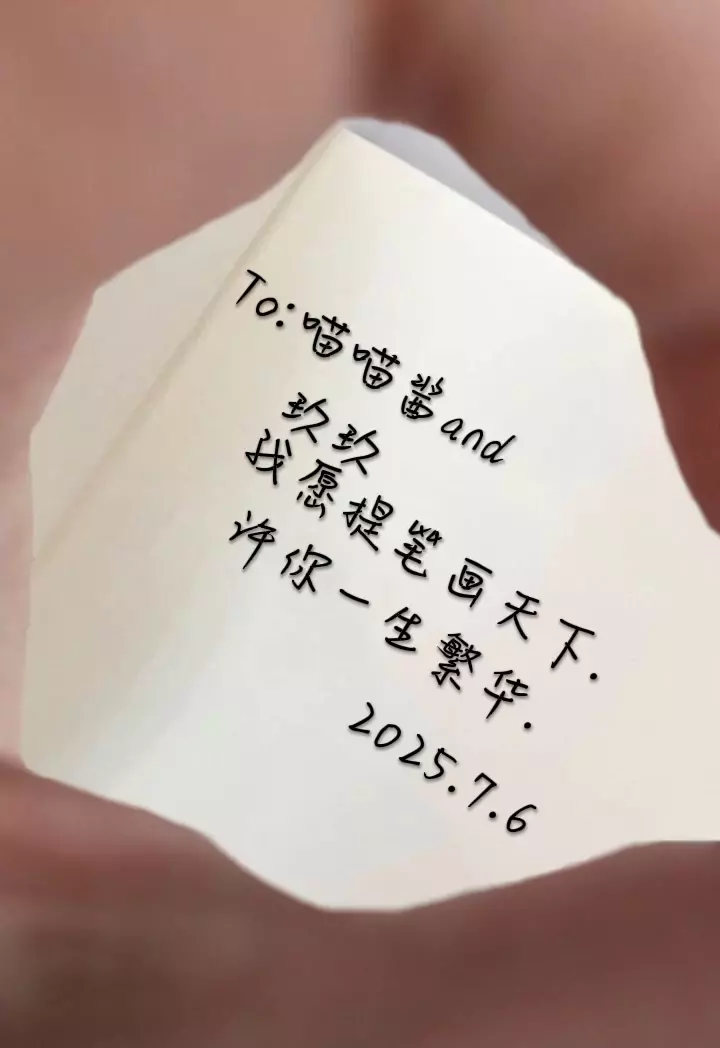 To:喵喵酱and
玖玖
我愿提笔画天下.
许你一生繁华.
2025.7.6